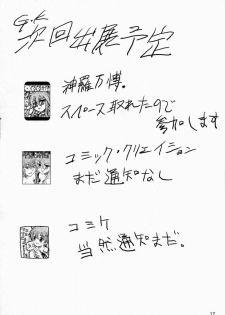 次回出展予定
神羅万博。
スペース取れたので
参加します
コミック・クリエイション
まだ通知なし
コミケ
当然通知まだ。